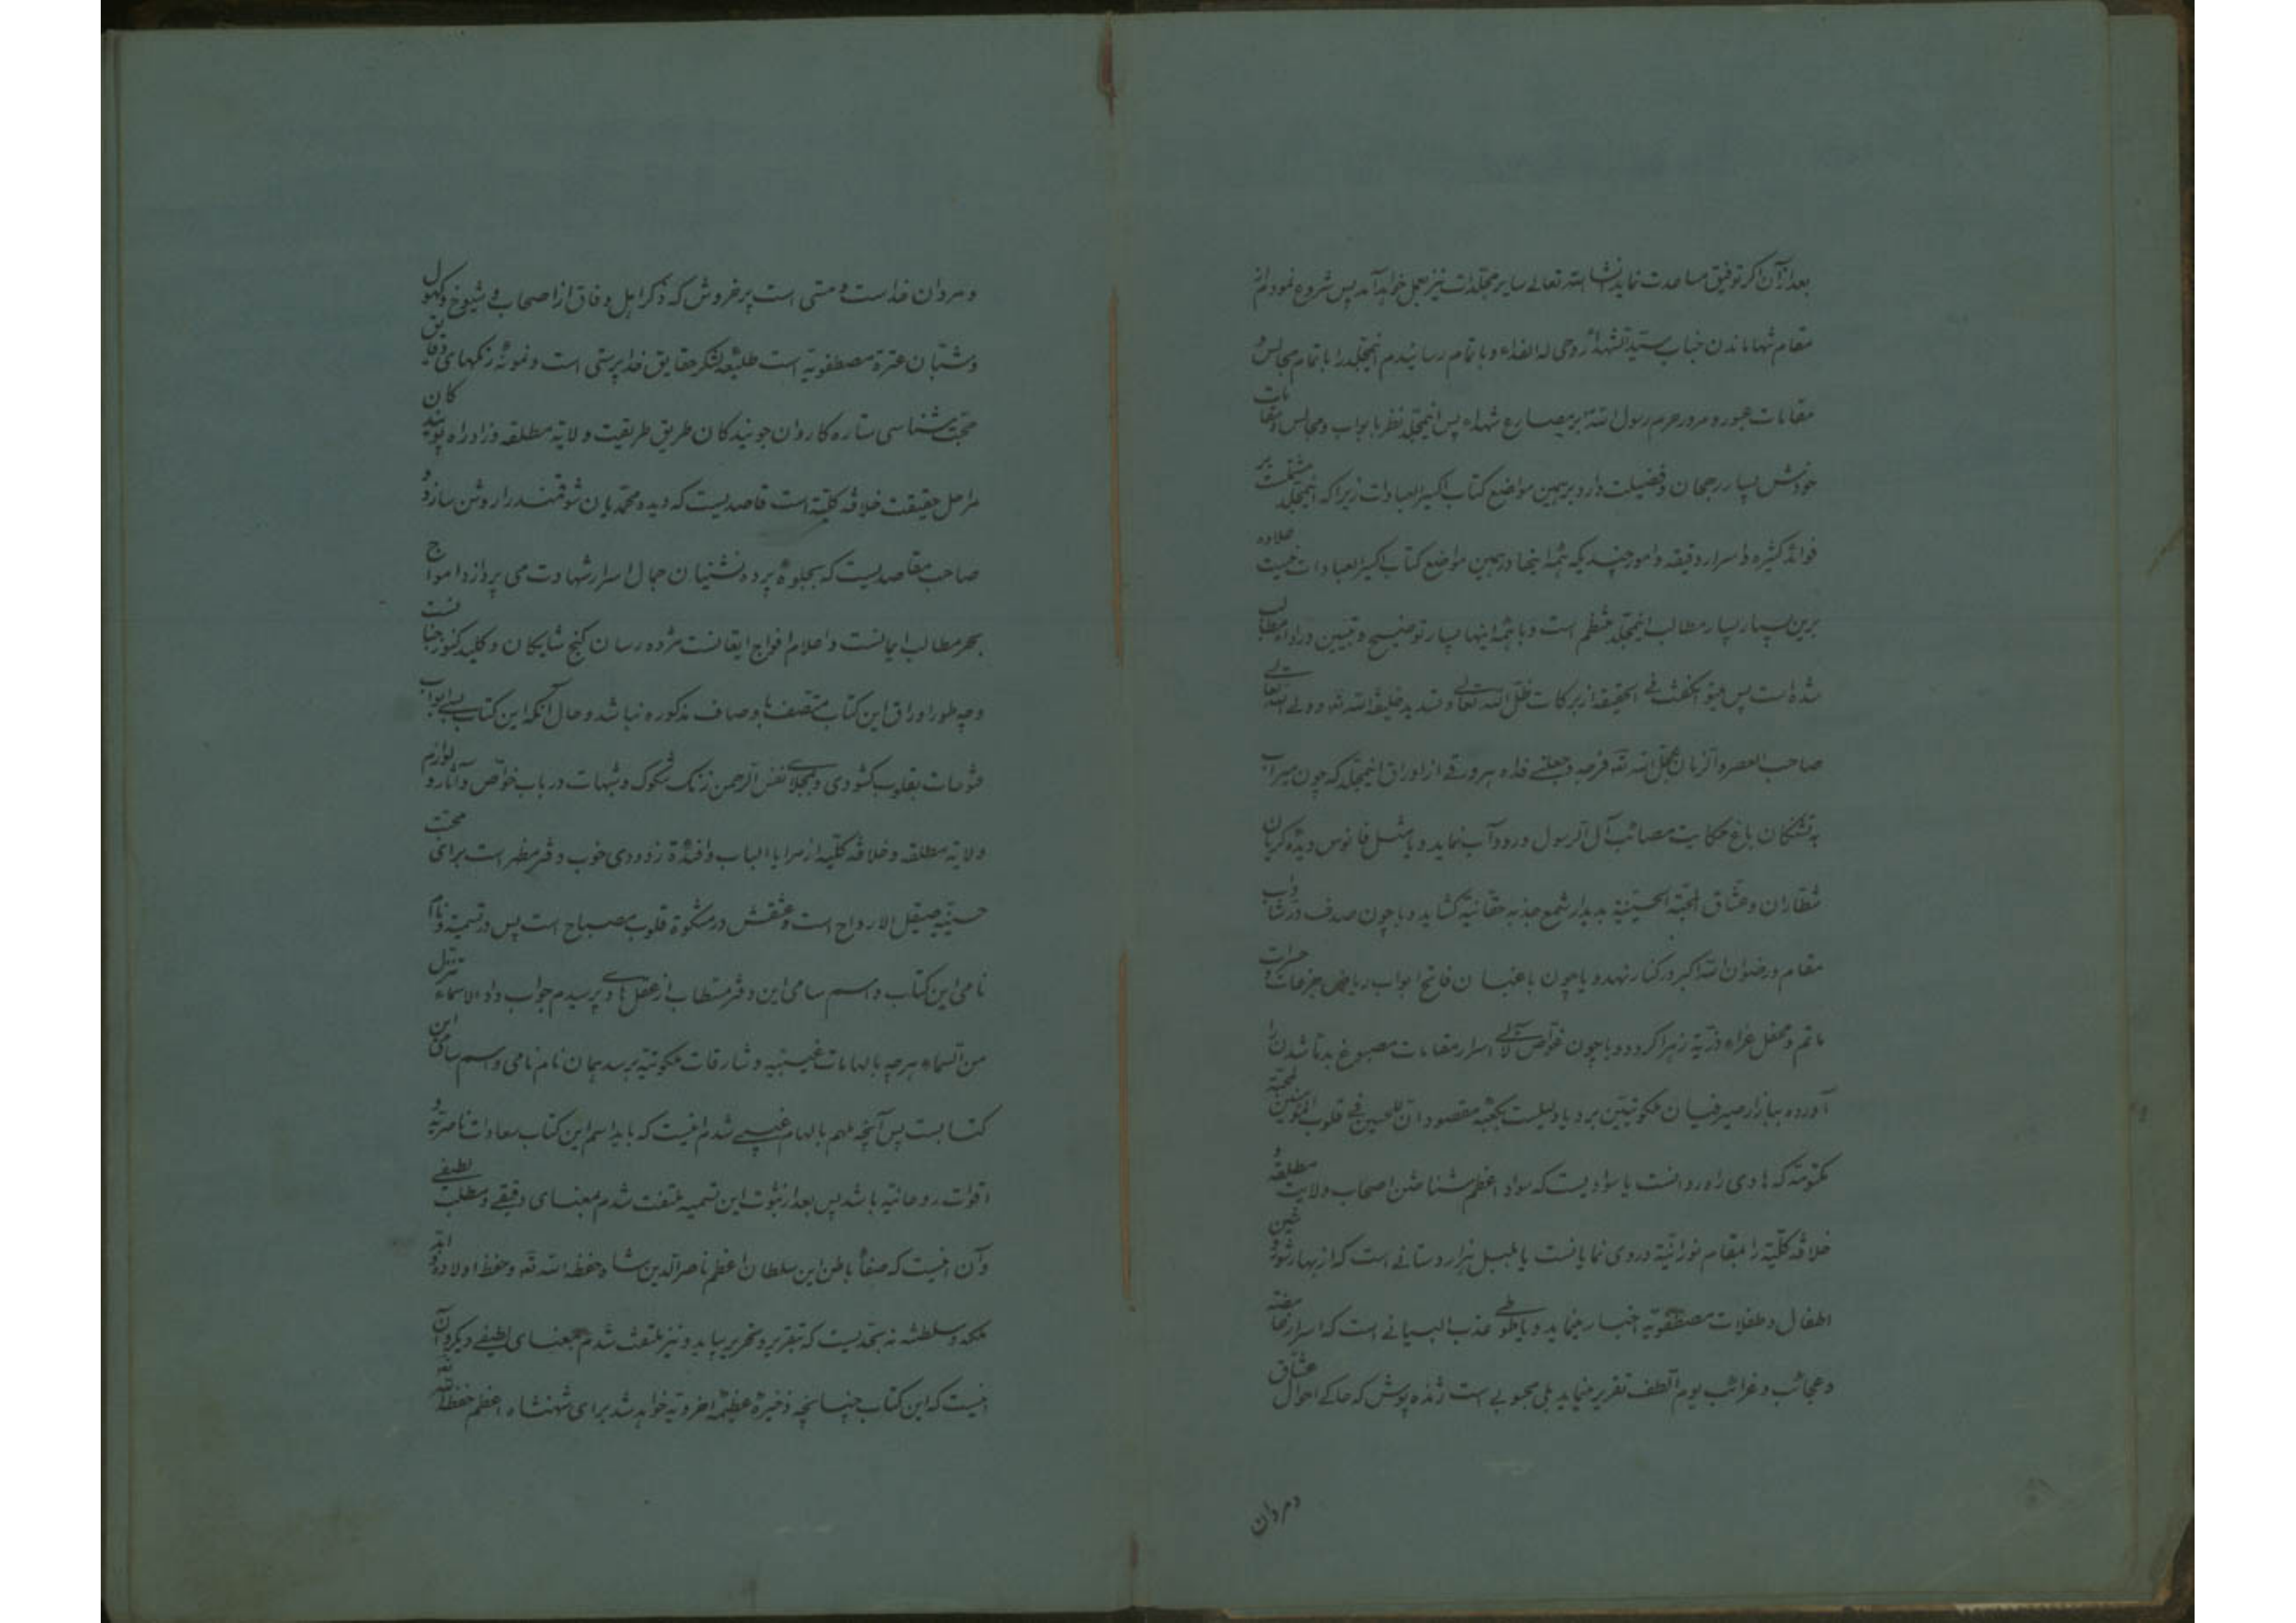 بعد از آن اگر توفیق مساعدت نماید انشا الله تعالی سایر مجلدات نیز بعمل خواهد آمد پس شروع نمودم از
مقام تنها ماندن جناب سید الشهداء روحی له الفداء و باتمام رسانیدم اینمجلد را باتمام مجالس و
مقامات عبور و مرور حرم رسول الله بر مصارع شهداء پس اینمجلد نظر بابواب و مجالس و مقامات
خودش بسیار رجحان و فضیلت دارد بر همین مواضع کتاب اکسیر العبادات زیرا که اینمجلد مشتملست بر
فوائد کثیره و اسرار دقیقه و امور چندیکه همهٔ اینها در همین مواضع کتاب اکسیر العبادات نیست علاوه
برین بسیار بسیار مطالب اینمجلد منظم است و با همهٔ اینها بسیار توضیح و تبیین در اداء مطالب
شده است پس میتوان گفت فی الحقیقه از برکات ظل الله تعالی و تسدید خلیفة الله و ولی الله تعالی
صاحب العصر و الزمان عجل الله فرجه و جعلنی فداه هر ورقی از اوراق اینمجلد که چون میراب
به تشنگان باغ حکایت مصائب آل الرسول ورود آب نماید و یا مثل فانوس دیده گریان
نظاران و عشاق المحبة الحسینیة بدیدار شمع جذبه حقانیة گشاید و یا چون صدف در شاداب
مقام و رضوان الله اکبر در کنار نهد و یا چون باغبان فاتح ابواب ریاض جزعات و حسرات
ماتم و محفل عزاء ذریة زهرا گردد و یا چون غواص لآلی اسرار مقامات مصبوغ بدماء شدن را
آورده ببازار صیرفیان ملکوتیین برد یا دلیلست بکعبه مقصود ان للحسین فی قلوب المؤمنین لمحبة
مکنونة که هادی راه روانست یا سوادیست که سواد اعظم شناختن اصحاب ولایت مطلقه و
خلافه کلیة را بمقام نورانیة در وی نمایانست یا بلبل هزار دستانی است که از بهار شور و شین
اطفال و طفلات مصطفویة اخبار مینماید و یا طوطی عذب البیانی است که اسرار غامضه
و عجائب و غرائب یوم الطف تقریر مینماید بلی محبوبی است ژنده پوش که حاکی احوال عشاق
و مردان
و مردان خداست و مستی است پر خروش که ذکر اهل وفاق از اصحاب و شیوخ و کهول
و شبان عترة مصطفویة است طلیعه لشکر حقایق خدا پرستی است و نمونهٔ رنگهای دقایق
محبت شناسی ستاره کاروان جویندکان طریق طریقت ولایة مطلقه و زاد راه پویندکان
مراحل حقیقت خلافة کلیة است قاصدیست که دیده محمدیان شوقمند را روشن سازد و
صاحب مقاصدیست که بجلوهٔ پرده نشینان جمال اسرار شهادت می پردازد امواج
بحر مطالب ایمانست و اعلام افواج ایقانست مژده رسان گنج شایکان و کلید کنوز جنانست
و چه طور اوراق این کتاب متصف باوصاف مذکوره نباشد و حال آنکه این کتاب بسی ابواب
فتوحات بقلوب کشودی و بمجلای نفس الرحمن زنک شکوک و شبهات در باب خواص و آثار و لوازم
ولایة مطلقه و خلافة کلیة از مرایا الباب و افئدة زدودی خوب دفتر مطهر است برای محبت
حسینیه صیقل الارواح است و عشقش در مشکوة قلوب مصباح است پس در تسمیة و نام
نامی این کتاب و اسم سامی این دفتر مستطاب از عقل هادی پرسیدم جواب داد الاسماء تتنزل
من السماء هرچه بالهامات غیبیه و شارقات ملکوتیة برسد همان نام نامی و اسم سامی این
کتابست پس آنچه ملهم بالهام غیبی شدم اینست که باید اسم این کتاب سعادات ناصریة و
اقوات روحانیة باشد پس بعد از ثبوت این تسمیه ملتفت شدم بمعنای دقیقی و مطلب لطیفی
و آن اینست که صفاء باطن این سلطان اعظم ناصر الدین شاه حفظه الله و حفظ اولاده و
ملکه و سلطنته نه بحدیست که بتقریر و تحریر بیاید و نیز ملتفت شدم بمعنای لطیفی دیکر و آن
اینست که این کتاب چنانچه ذخیرة عظیمهٔ اخرویة خواهد شد برای شهنشاه اعظم حفظه الله